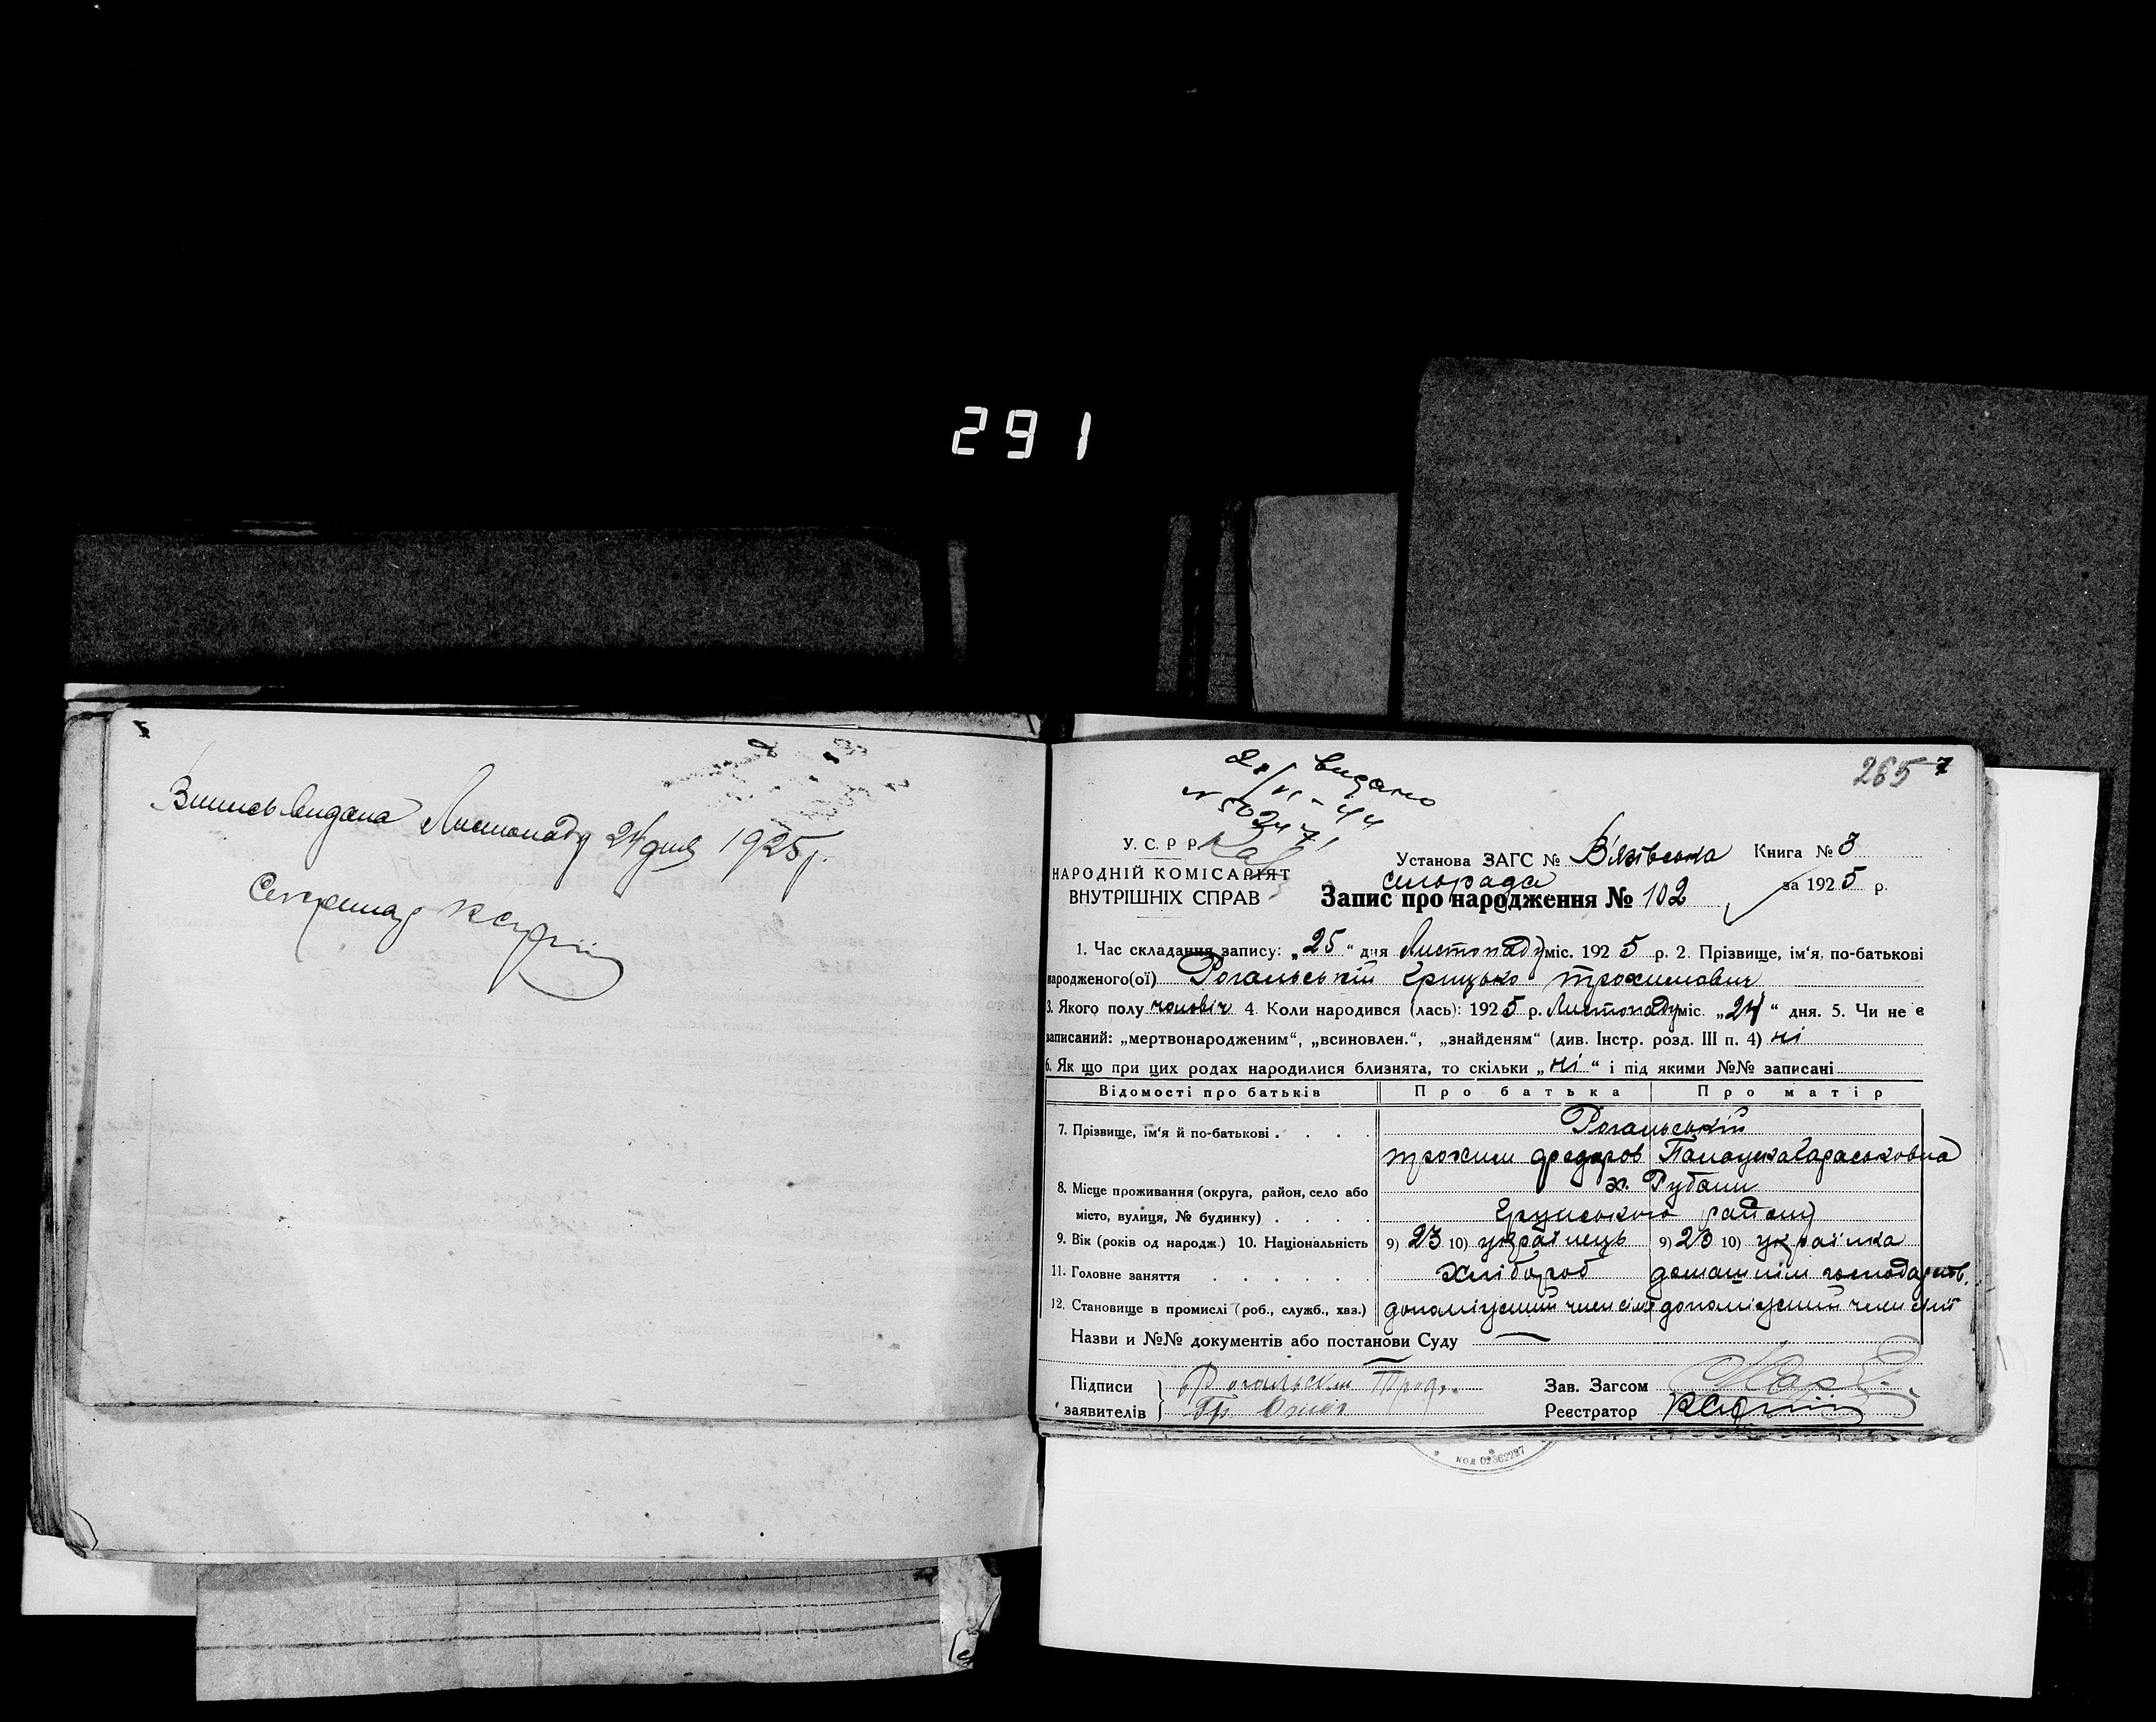 291
Випись видана Листопаду 24 дня 1925 р.
Секретар
265 7
28/VI - 44 видано
N 50247
У. С. Р Р
НАРОДНІЙ КОМІСАРІЯТ
ВНУТРІШНІХ СПРАВ
Установа ЗАГС № Вязівська Книга № 3
сільрада за 1925 р.
Запис про народження № 102
1. Час складання запису: „25“ дня Листопаду міс. 1925 р. 2. Прізвище, ім'я, по-батькові
народженого(ої) Рогальський Грицько Трохимович
3. Якого полу чоловіч 4. Коли народився (лась): 1925 р. Листопаду міс. „24“ дня. 5. Чи не є
записаний: „мертвонародженим“, „всиновлен.“, „знайденям“ (див. Інстр. розд. III п. 4) ні
6. Як що при цих родах народилися близнята, то скільки „ні“ і під якими №№ записані
Відомості про батьків Про батька Про матір
7. Прізвище, ім'я й по-батькові . . . . Рогальській
Трохим Федоров Палажка Тараськовна
8. Місце проживання (округа, район, село або х. Рубани
місто, вулиця, № будинку) . . . . Грунського району
9. Вік (років од народж.) 10. Національність 9) 23 10) українець 9) 23 10) українка
11. Головне заняття . . . . . . Хлібороб домашнім господарств.
12. Становище в промислі (роб., служб., хаз.) допоміжний член сімї допоміжний член сімї
Назви и №№ документів або постанови Суду —
Підписи Рогальским Зав. Загсом
заявителів Реєстратор
код 02362297